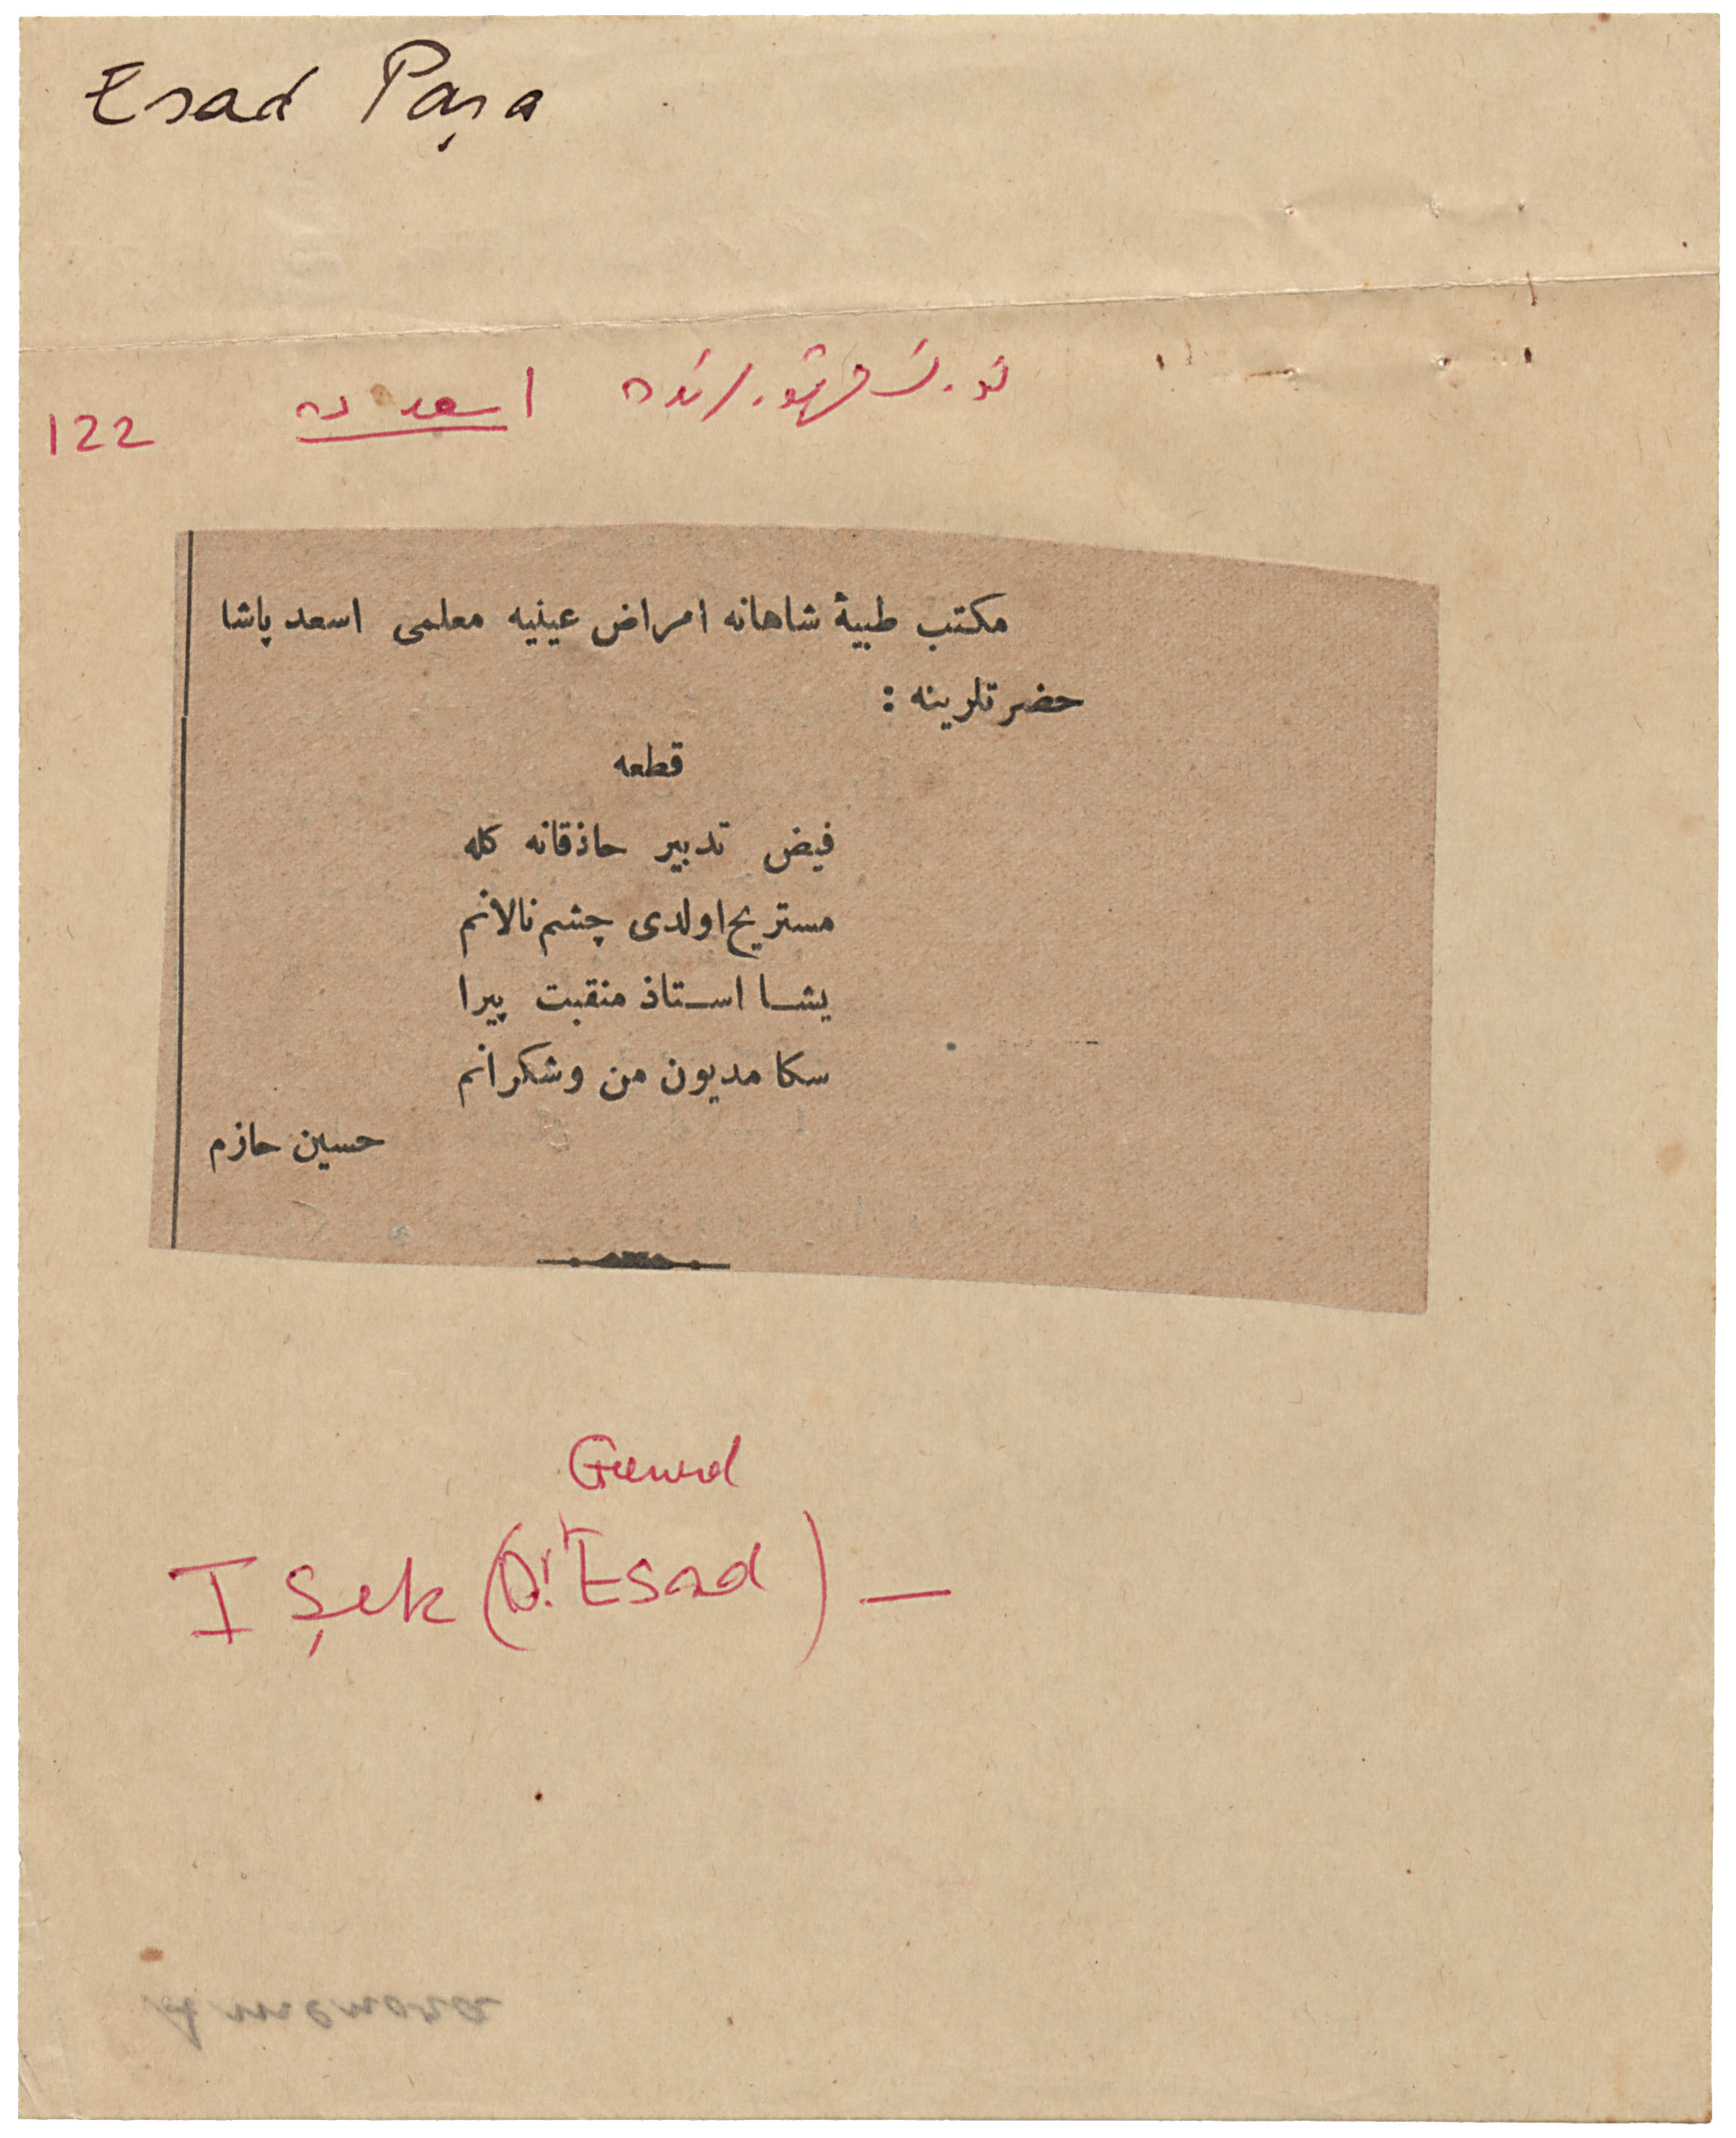 Esad Paşa
اسعد
122
مكتب طبیهٔ شاهانه امراض عینیه معلمی اسعد پاشا
حضرتلرینه :
قطعه
فیض تدبیر حاذقانه كله
مستریح اولدی چشم نالانم
یشا استاذ منقبت پیرا
سكا مدیون من وشكرانم
حسین حازم
I Şek (Dr Esad) —